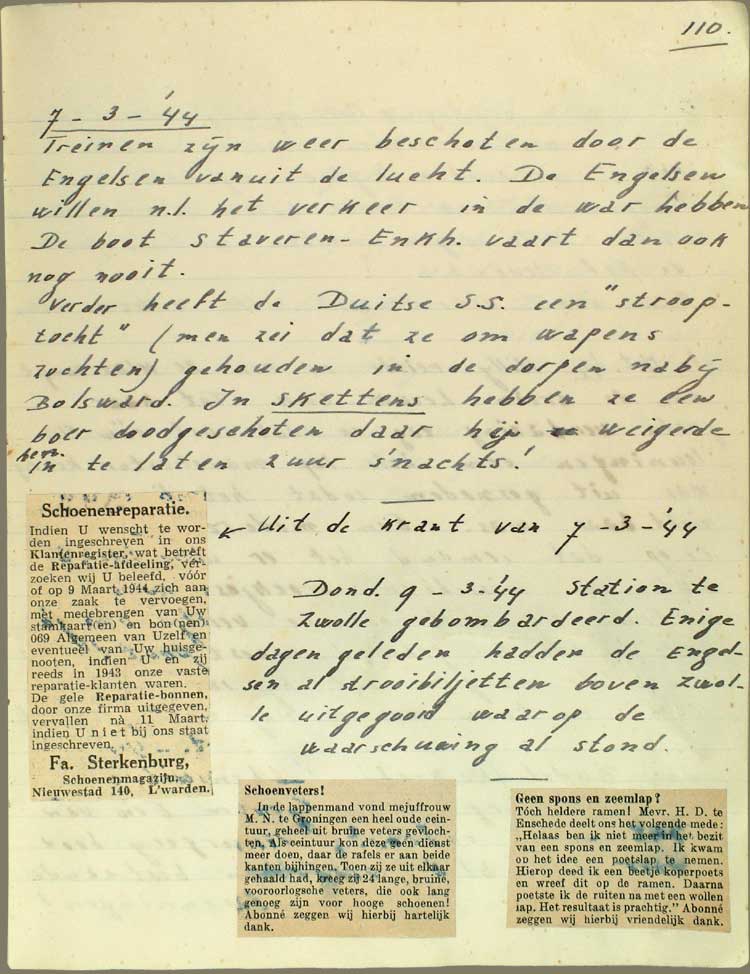 110.
7-3-'44
Treinen zijn weer beschoten door de
Engelsen vanuit de lucht. De Engelsen
willen n.l. het verkeer in de war hebben
De boot Staveren-Enkh. vaart dan ook
nog nooit.
Verder heeft de Duitse S.S. een "stroop-
tocht" (men zei dat ze om wapens
zochten) gehouden in de dorpen nabij
Bolsward. In Skettens hebben ze een
boer doodgeschoten daar hij weigerde
hen
in te laten zuur s'nachts!
Schoenenreparatie.
Indien U wenscht te wor-
den ingeschreven in ons
Klantenregister, wat betreft
de Reparatie-afdeeling, ver-
zoeken wij U beleefd, vóór
of op 9 Maart 1944 zich aan
onze zaak te vervoegen,
met medebrengen van Uw
stamkaart(en) en bon(nen)
069 Algemeen van Uzelf en
eventueel van Uw huisge-
nooten, indien U en zij
reeds in 1943 onze vaste
reparatie-klanten waren.
De gele Reparatie-bonnen,
door onze firma uitgegeven,
vervallen nà 11 Maart,
indien U niet bij ons staat
ingeschreven.
Fa. Sterkenburg,
Schoenenmagazijn,
Nieuwestad 140, L'warden.
Uit de krant van 7-3-'44
Dond. 9-3-'44 Station te
Zwolle gebombardeerd. Enige
dagen geleden hadden de Engel-
sen al strooibiljetten boven Zwol-
le uitgegooid waarop de
waarschuwing al stond.
Schoenveters!
In de lappenmand vond mejuffrouw
M. N. te Groningen een heel oude cein-
tuur, geheel uit bruine veters gevloch-
ten. Als ceintuur kon deze geen dienst
meer doen, daar de rafels er aan beide
kanten bijhingen. Toen zij ze uit elkaar
gehaald had, kreeg zij 24 lange, bruine,
vooroorlogsche veters, die ook lang
genoeg zijn voor hooge schoenen!
Abonné zeggen wij hierbij hartelijk
dank.
Geen spons en zeemlap?
Tóch heldere ramen! Mevr. H. D. te
Enschede deelt ons het volgende mede:
„Helaas ben ik niet meer in het bezit
van een spons en zeemlap. Ik kwam
op het idee een poetslap te nemen.
Hierop deed ik een beetje koperpoets
en wreef dit op de ramen. Daarna
poetste ik de ruiten na met een wollen
lap. Het resultaat is prachtig." Abonné
zeggen wij hierbij vriendelijk dank.